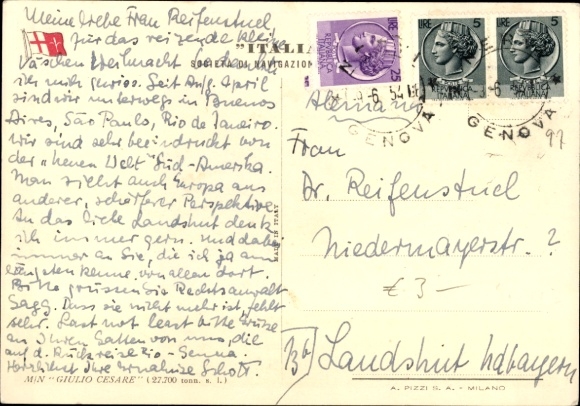 Meine liebe Frau Reifenstuel
für das reizende kleine
Väschen Weihnacht
ich mich Seit Anfg. April
sind wir unterwegs in Buenos
Aires, São Paulo, Rio de Janeiro.
Wir sind sehr beeindruckt von
der "neuen Welt" Süd-Amerika.
Man sieht auch Europa aus
anderer, schärferer Perspektive.
An das liebe Landshut denk
ich immer gern. Und dabei
immer an Sie, die ich ja am
längsten kenne von allen dort.
Bitte grüssen Sie Rechtsanwalt
Sagg. Dass sie nicht mehr ist fehlt
sehr. Last not least bitte Grüsse
an Ihren Gatten von uns, die
auf d. Rückreise Rio-Genua.
Herzlichst Ihre Schott.
M/N "GIULIO CESARE" (27.700 tonn. s. l.)
"ITALIA"
SOCIETÀ DI NAVIGAZIONE
MADE IN ITALY
LIRE 25
LIRE 5
LIRE 5
GENOVA
GENOVA
Alemania
97
Frau
Dr. Reifenstuel
Niedermayerstr. ?
€ 3-
13b Landshut Ndbayern
A. PIZZI S. A. - MILANO